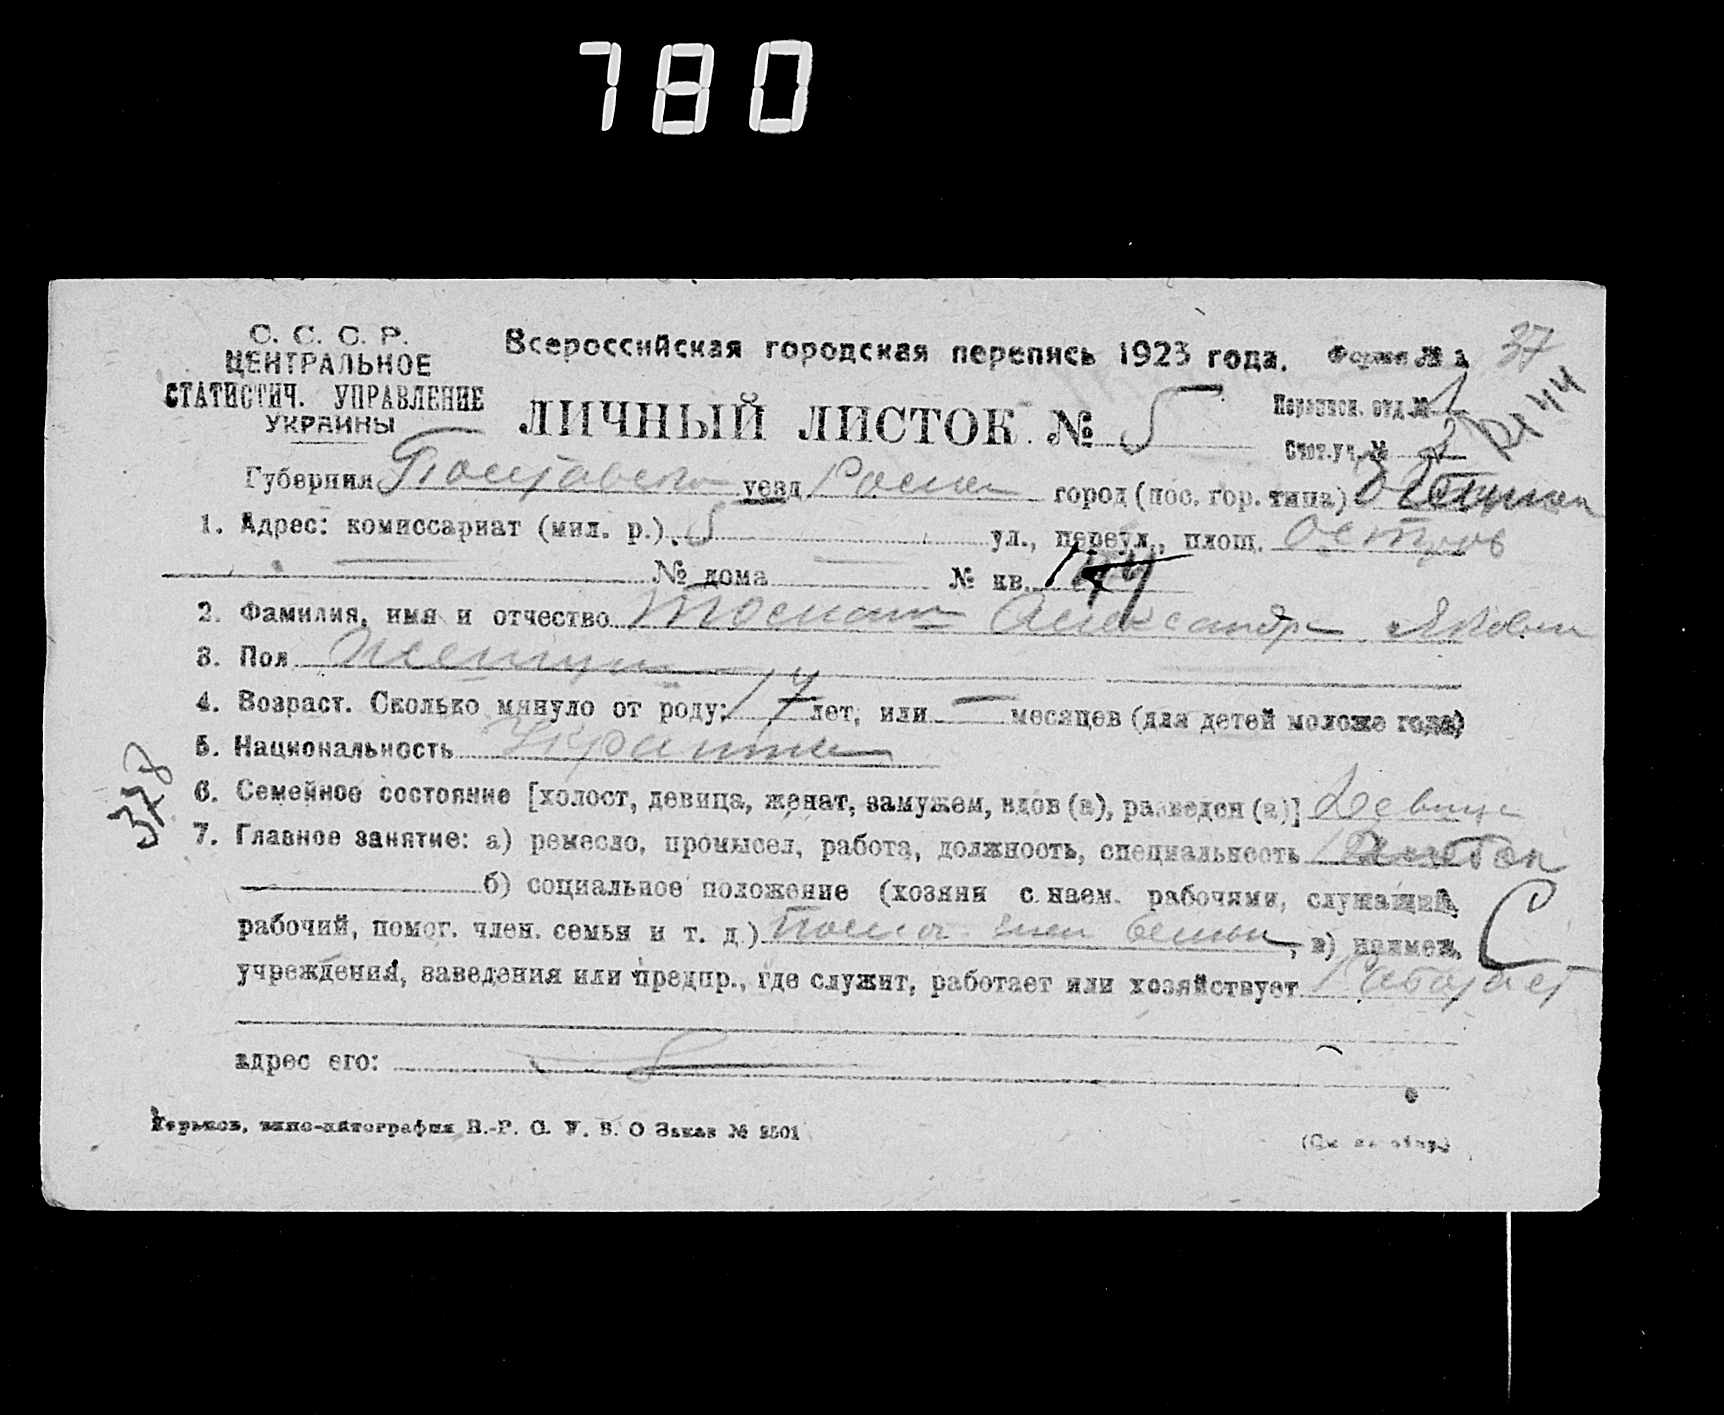 780
С. С. С. Р.
ЦЕНТРАЛЬНОЕ
СТАТИСТИЧ. УПРАВЛЕНИЕ
УКРАИНЫ
Всероссийская городская перепись 1923 года. Форма № 1 37
ЛИЧНЫЙ ЛИСТОК № 5
Переписн. отд. №
Счет. уч. №
Губерния Полтавска уезд город (пос. гор. типа)
1. Адрес: комиссариат (мил. р.) 5 ул., переул., площ. Остров
№ дома № кв. 144
2. Фамилия, имя и отчество Александра Яковл
3. Пол Женщин
4. Возраст. Сколько минуло от роду: 17 лет, или — месяцев (для детей моложе года)
5. Национальность Украинка
378
6. Семейное состояние [холост, девица, женат, замужем, вдов (а), разведен (а)] Девица
7. Главное занятие: а) ремесло, промысел, работа, должность, специальность
б) социальное положение (хозяин с наем. рабочими, служащий,
рабочий, помог. член. семьи и т. д.) член семьи, в) наимен. С
учреждения, заведения или предпр., где служит, работает или хозяйствует Работает
адрес его:
Харьков, типо-литография В.-Р. С. У. В. О Заказ № 2501
(См. на обор.)